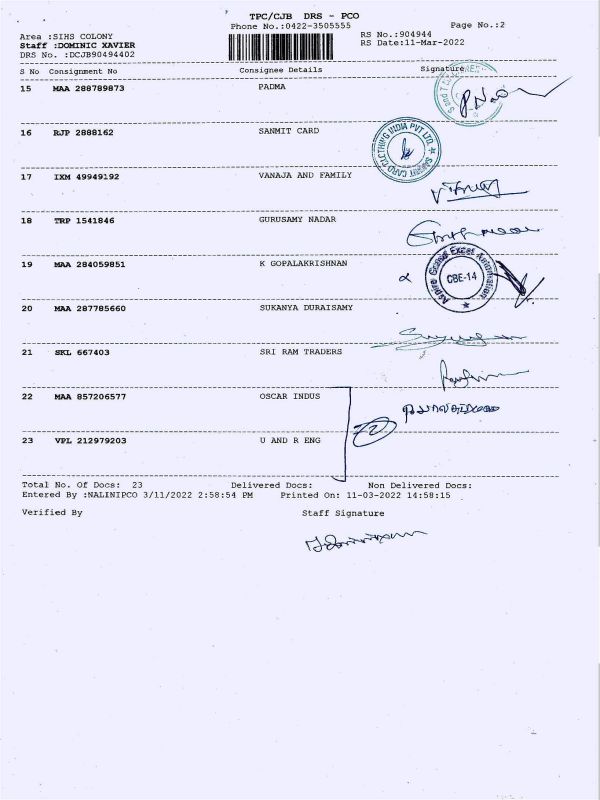 TPC/CJB DRS - PCO
Phone No.:0422-3505555
Page No.:2
Area :SIHS COLONY
RS No.:904944
Staff :DOMINIC XAVIER
RS Date:11-Mar-2022
DRS No. :DCJB90494402
S No Consignment No Consignee Details Signature
15 MAA 288789873 PADMA
16 RJP 2888162 SANMIT CARD
17 IXM 49949192 VANAJA AND FAMILY
18 TRP 1541846 GURUSAMY NADAR
19 MAA 284059851 K GOPALAKRISHNAN
CBE-14
20 MAA 287785660 SUKANYA DURAISAMY
21 SKL 667403 SRI RAM TRADERS
22 MAA 857206577 OSCAR INDUS
2
23 VPL 212979203 U AND R ENG
Total No. Of Docs: 23 Delivered Docs: Non Delivered Docs:
Entered By :NALINIPCO 3/11/2022 2:58:54 PM Printed On: 11-03-2022 14:58:15
Verified By Staff Signature